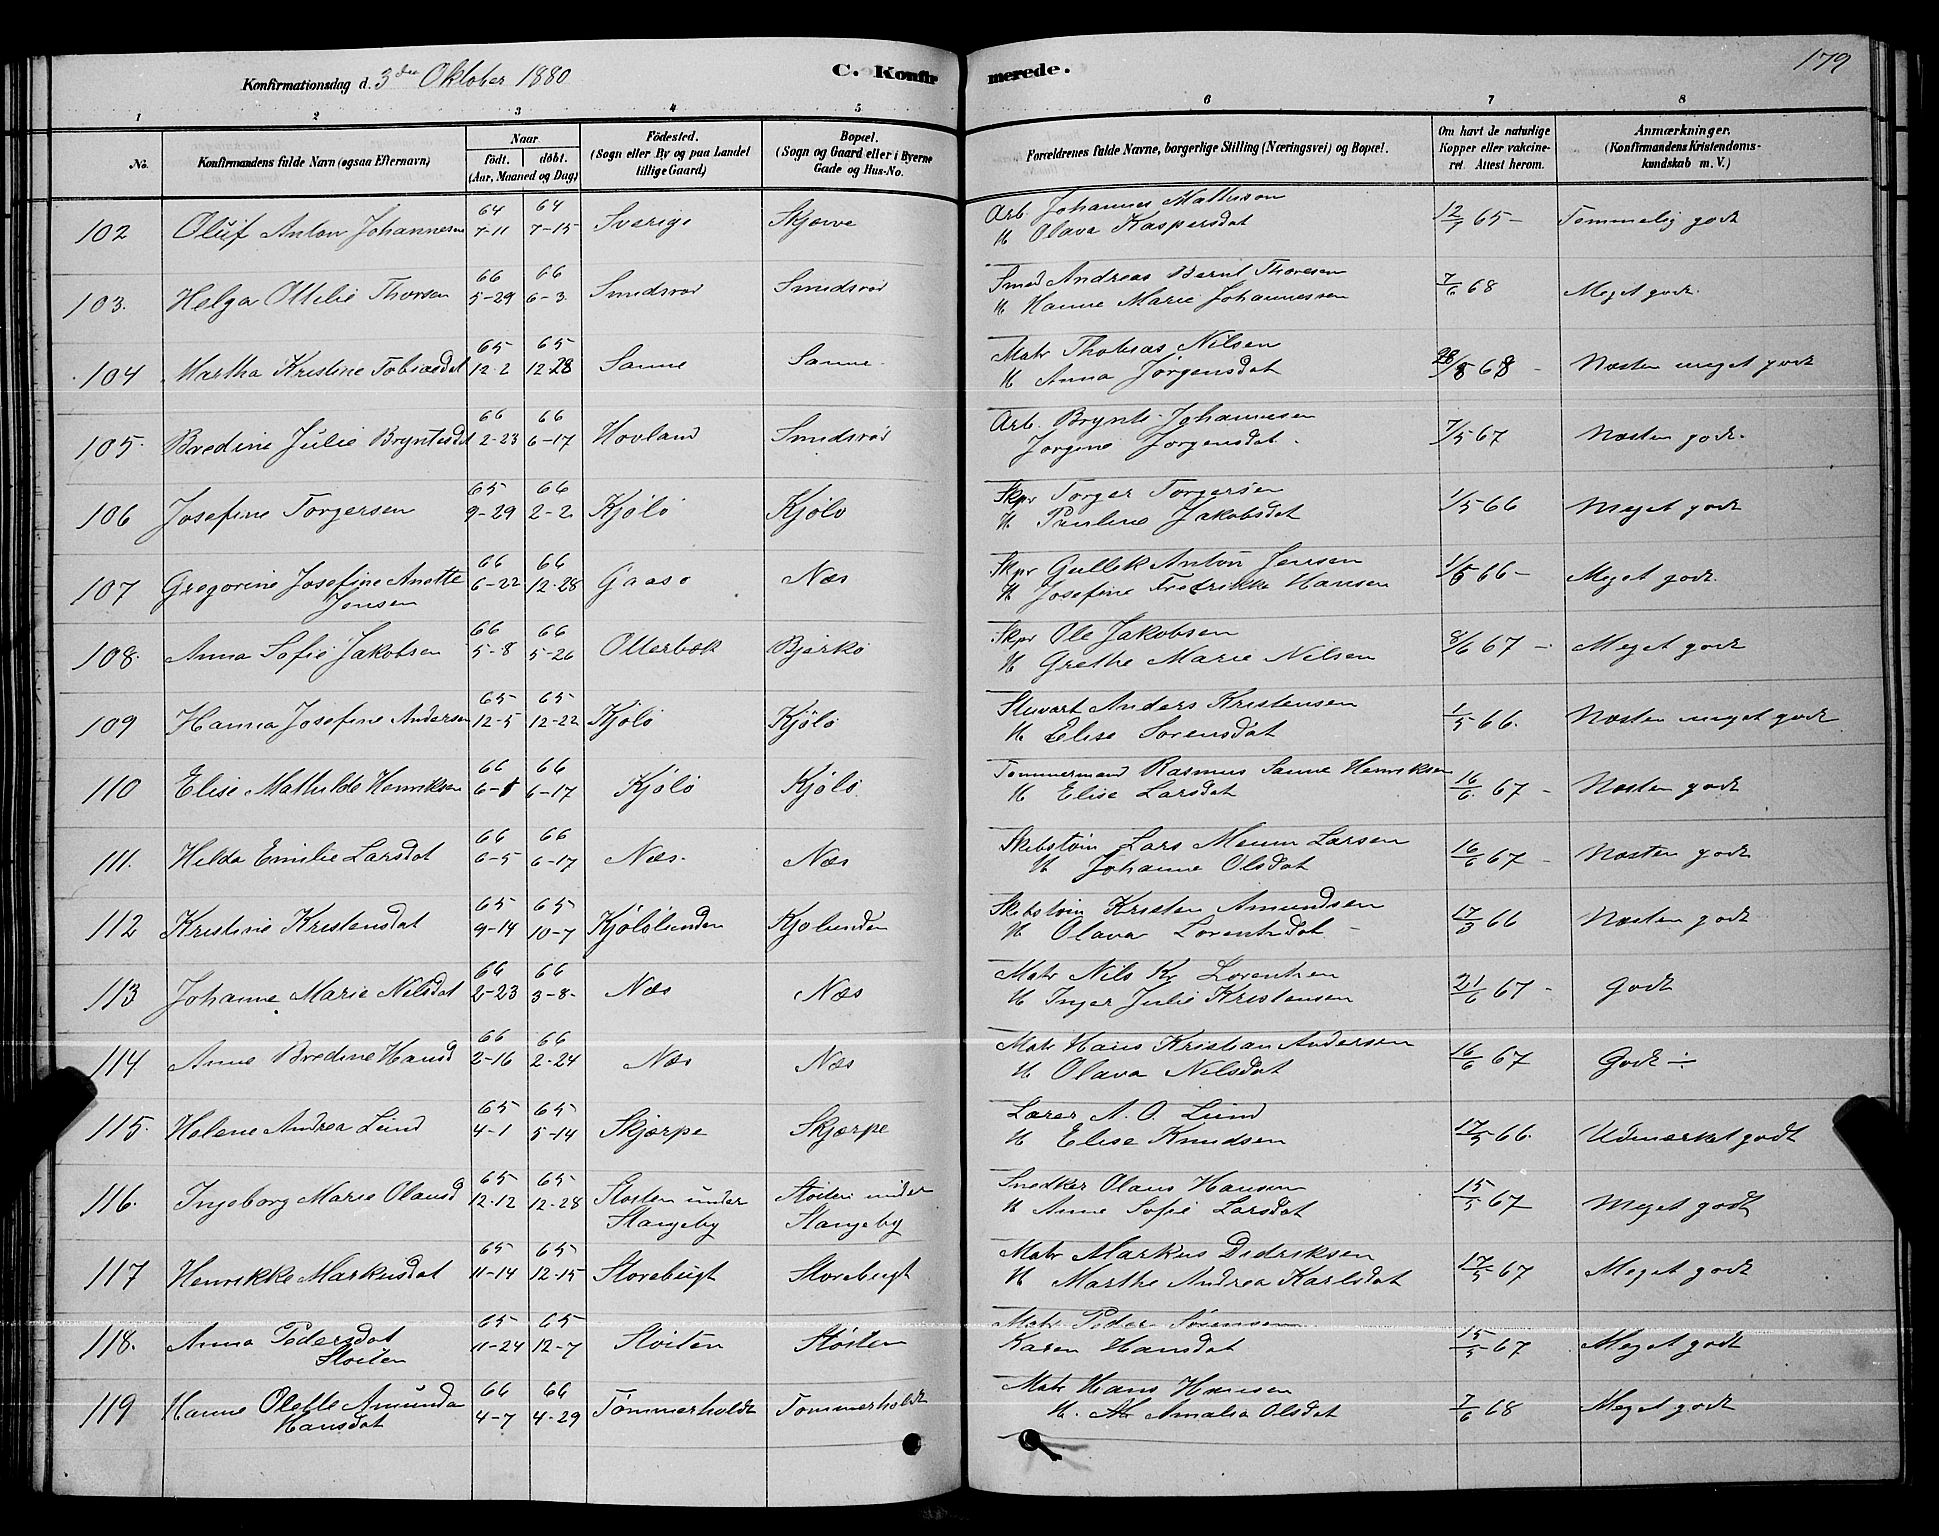 179
Konfirmationsdag d. 3die Oktober 1880 C. Konfirmerede.
1 2 3 4 5 6 7 8
No. Konfirmandens fulde Navn (ogsaa Efternavn) Naar født. døbt. (Aar, Maaned og Dag) Fødested. (Sogn eller By og paa Landet tillige Gaard) Bopæl. (Sogn og Gaard eller i Byerne Gade og Hus-No. Forældrenes fulde Navne, borgerlige Stilling (Næringsvei) og Bopæl. Om havt de naturlige Kopper eller vakcineret. Attest herom. Anmærkninger. (Konfirmandens Kristendomskundskab m. V.)
102 Oluf Anton Johannesen 64 7-11 64 7-15 Sverige Skjævve Arb. Johannes Mathisen
H Olava Kaspersdat 12/7 65 - Temmelig godt
103. Helga Ottilie Thorsen 66 5-29 66 6-3 Smidsrød Smidsrød Smed Andreas Bernt Thoresen
H Hanne Marie Johannessen 7/6 68 Meget godt
104 Martha Kristine Tobiasdat 65 12-2 65 12-28 Sanne Sanne Matr Thobias Nilsen
H Anna Jørgensdat 68 - Næsten meget godt
105. Bredine Julie Bryntesdat 66 2-23 66 6-17 Hovland Smidsrød Arb. Brynte Johannesen
Jørgine Jørgensdat. 7/5 67 Næsten godt.
106 Josefine Torgersen 65 9-29 66 2-2 Kjølø Kjølø Skpr Torger Torgersen
H Pauline Jakobsdat 1/5 66 Meget godt
107 Gregorine Josefine Anette
Jensen 66 6-22 66 12-28 Gaasø Næs Skpr Gullek Anton Jensen
H Josefine Fredrikke Hansen 1/5 66 - Meget godt.
108. Anna Sofie Jakobsen 66 5-8 66 5-26 Otterbæk Bjørkø Skpr Ole Jakobsen
H Grethe Marie Nilsen 8/6 67 - Meget godt
109 Hanna Josefine Andersen 65 12-5 65 12-22 Kjølø Kjølø Stuvart Anders Kristensen
H Elise Sorensdat 1/5 66. Næsten meget godt
110 Elise Mathilde Henriksen 66 6-1 66 6-17 Kjølø Kjølø Tømmermand Rasmus Sanne Henriksen
H Elise Larsdat 16/6 67 - Næsten godt
111. Hilda Emilie Larsdat 66 6-5 66 6-17 Næs. Næs Skibstøm Lars Larsen
H Johanne Olsdat 16/6 67 - Næsten godt
112 Kristine Kristensdat 65 9-14 65 10-7 Kjølølunden Kjølunden Skibstøm Kristen Amundsen
H Olava Lorentsdat - 17/3 66 Næsten godt
113 Johanne Marie Nilsdat 66 2-23 66 3-8- Næs Næs Matr Nils Kr Lorentzen
H Inger Julie Kristensen 21/6 67 - Godt
114 Anne Bredine Hansd 66 2-16 66 2-24 Næs Næs Matr Hans Kristian Andersen
H Olava Nilsdat 16/6 67 Godt ÷
115. Helene Andrea Lund 65 4-1 65 5-14 Skjærpe Skjærpe Lærer A. O. Lund
H Elise Knudsen 17/5 66. Udmærket godt
116. Ingeborg Marie Olausd 65 12-12 65 12-28 Sloiten under
Slangeby Sloiten under
Slangeby Snedker Olaus Hansen
H Anne Sofie Larsdat 15/5 67 Meget godt
117 Henrikke Markusdat 65 11-14 65 12-15 Storebugt Storebugt Matr Markus Didriksen
H Marthe Andrea Karlsdat 17/5 67 Meget godt
118. Anna Pedersdat
Sloiten 65 11-24 65 12-7 Sloiten Sloiten Matr Peder Sørensen
Karen Hansdat 15/5 67 Meget godt
119 Hanne Olette Amunda
Hansdat 66 4-7 66 4-29 Tømmerholdt Tømmerholdt Matr Hans Hansen
H. Amalia Olsdat 7/6 68 Meget godt